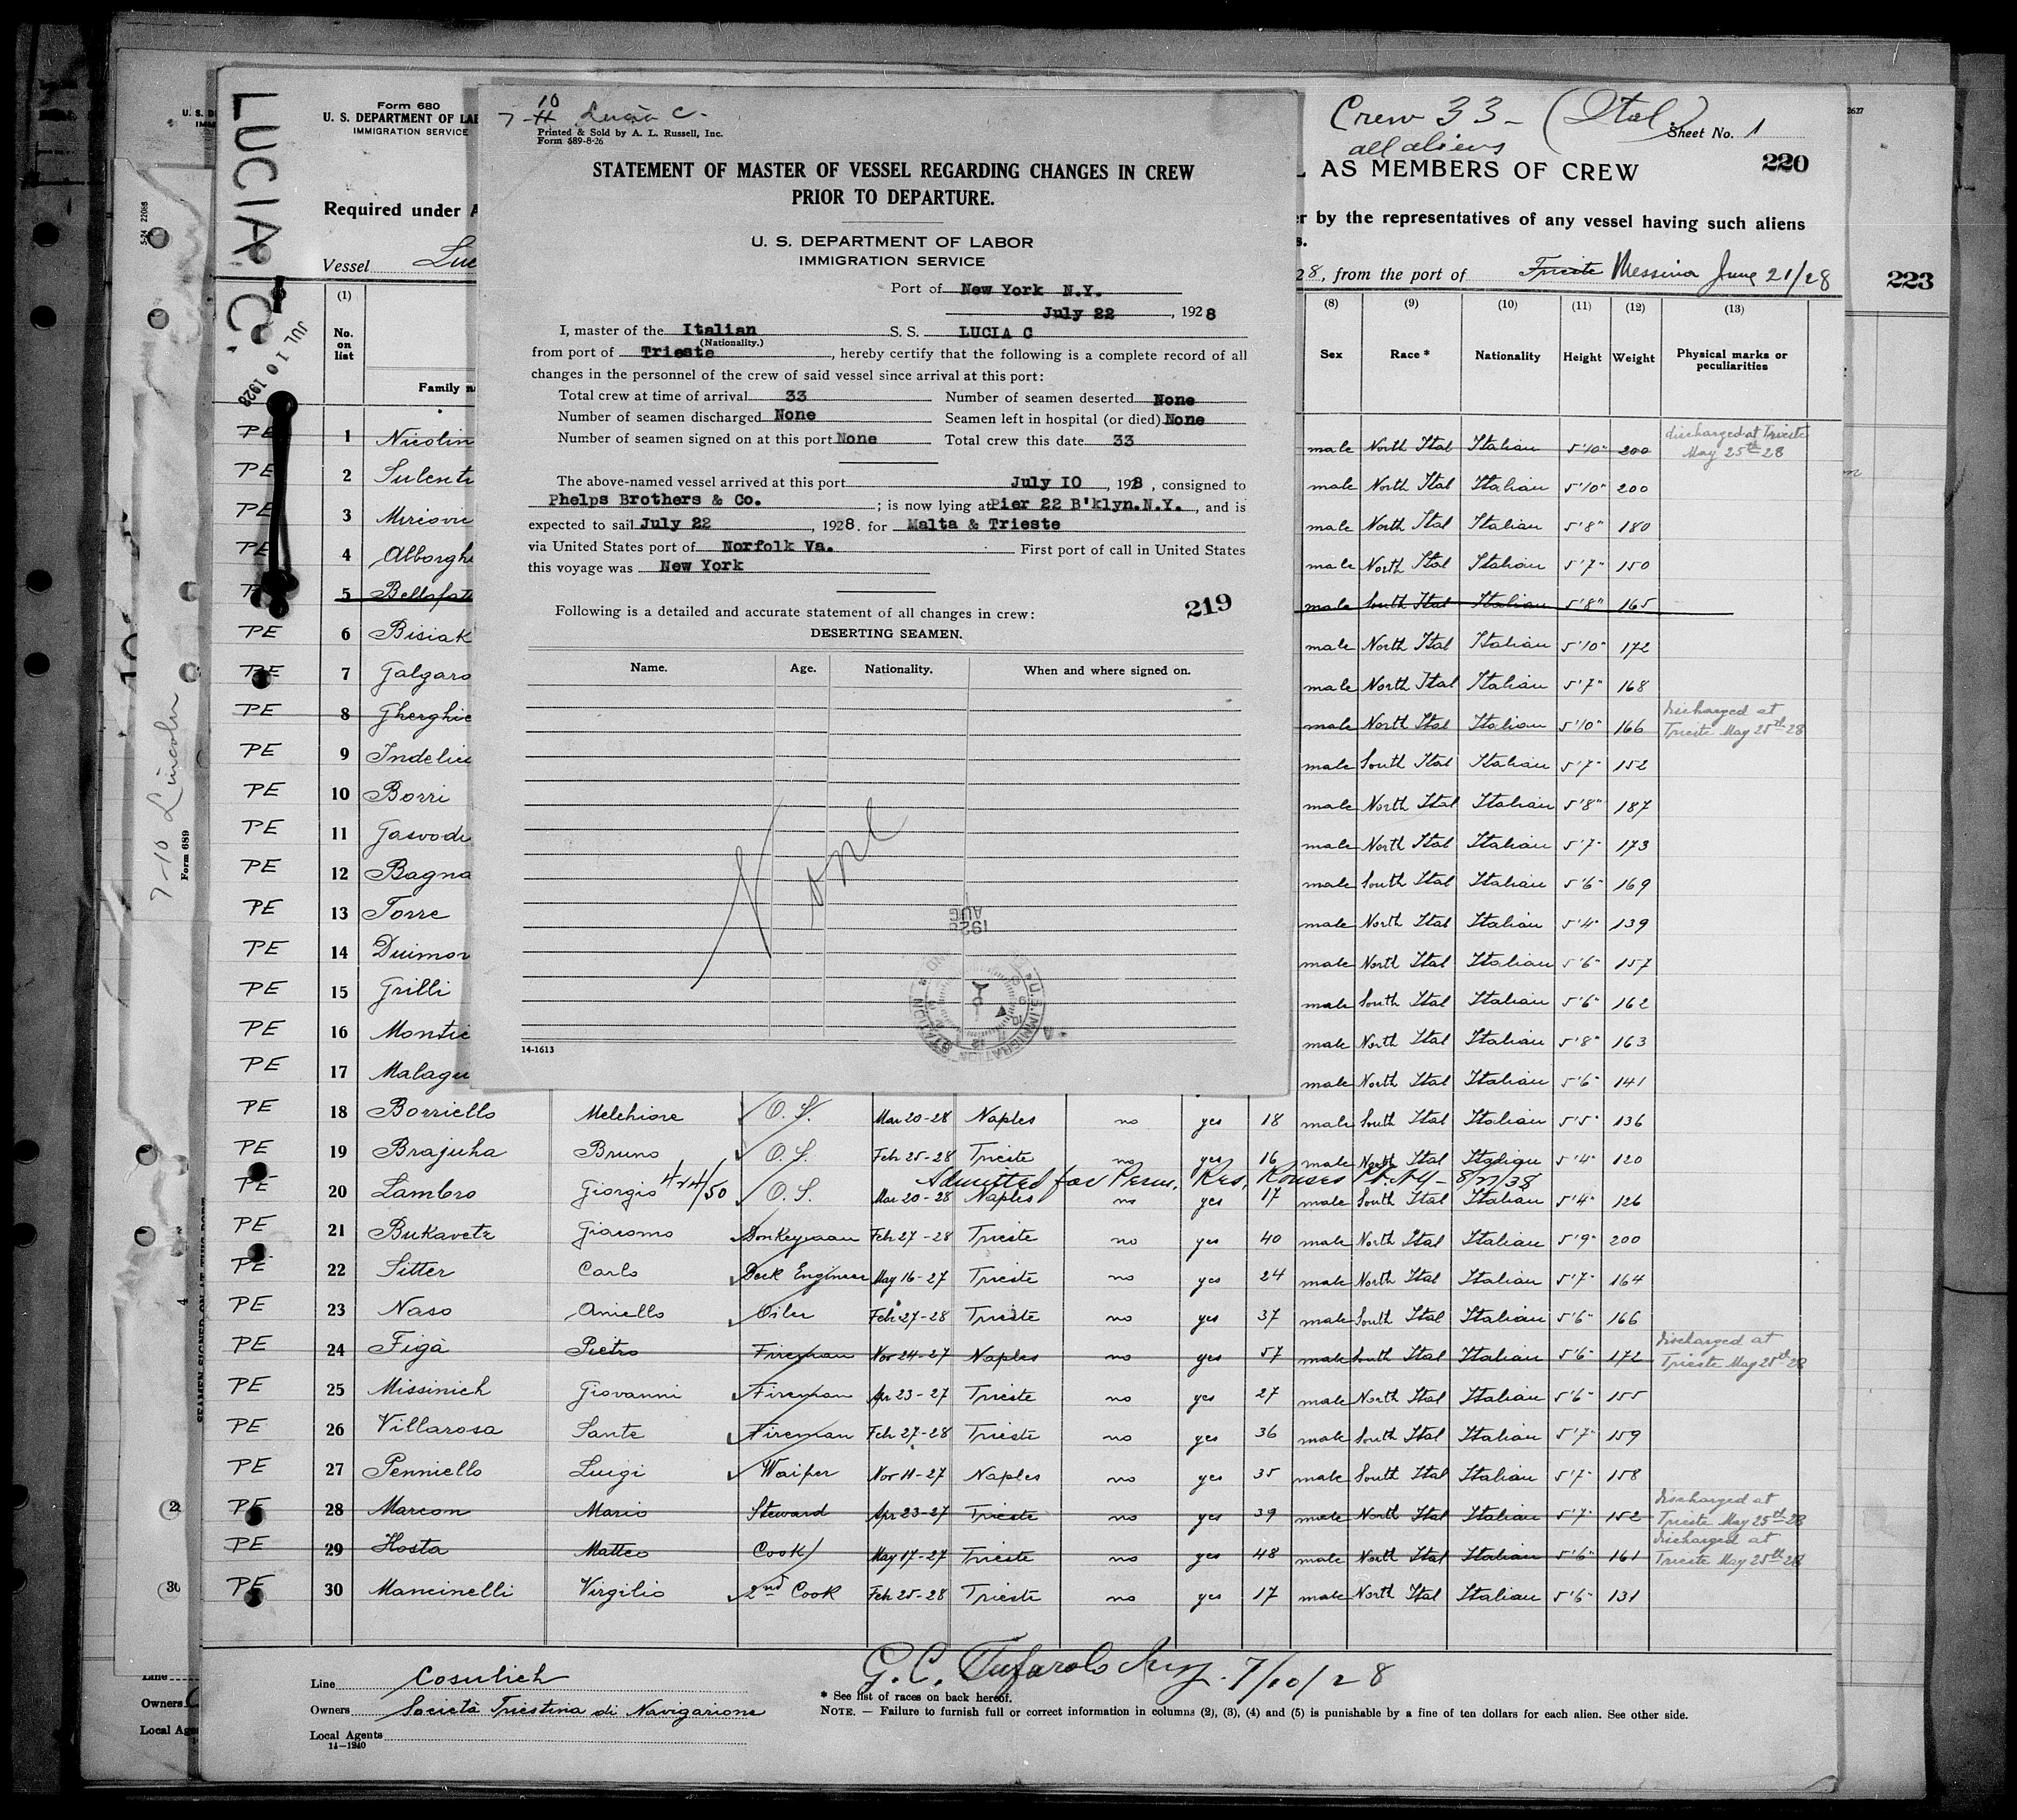 LUCIA C.
JUL 10 1928
Form 680
U. S. DEPARTMENT OF LAB
IMMIGRATION SERVICE
Required under A
Vessel Luc
10
7-11 Lucia C.
Printed & Sold by A. L. Russell, Inc.
Form 689-8-26
STATEMENT OF MASTER OF VESSEL REGARDING CHANGES IN CREW
PRIOR TO DEPARTURE.
U. S. DEPARTMENT OF LABOR
IMMIGRATION SERVICE
Port of New York N.Y.
July 22, 1928
I, master of the Italian S. S. LUCIA C
(Nationality.)
from port of Trieste, hereby certify that the following is a complete record of all
changes in the personnel of the crew of said vessel since arrival at this port:
Total crew at time of arrival 33 Number of seamen deserted None
Number of seamen discharged None Seamen left in hospital (or died) None
Number of seamen signed on at this port None Total crew this date 33
The above-named vessel arrived at this port July 10, 1928, consigned to
Phelps Brothers & Co.; is now lying at Pier 22 B'klyn.N.Y., and is
expected to sail July 22, 1928. for Malta & Trieste
via United States port of Norfolk Va. First port of call in United States
this voyage was New York
Following is a detailed and accurate statement of all changes in crew: 219
DESERTING SEAMEN.
Name. Age. Nationality. When and where signed on.
None
AUG
1928
U.S. IMMIGRATION STATION
14-1613
Crew 33 - (Ital)
all aliens
Sheet No. 1
220
L AS MEMBERS OF CREW
r by the representatives of any vessel having such aliens
s.
28, from the port of Trieste Messina June 21/28
223
2627
(1) (8) (9) (10) (11) (12) (13)
No. on list Family n Sex Race * Nationality Height Weight Physical marks or peculiarities
PE 1 Nicolin male North Ital Italian 5'10" 200 discharged at Trieste May 25th 28
PE 2 Sulenti male North Ital Italian 5'10" 200
PE 3 Miriovi male North Ital Italian 5'8" 180
PE 4 Alborghe male North Ital Italian 5'7" 150
5 Bellafat male South Ital Italian 5'8" 165
PE 6 Bisiak male North Ital Italian 5'10" 172
PE 7 Galgaro male North Ital Italian 5'7" 168
PE 8 Gherghic male North Ital Italian 5'10" 166 discharged at Trieste May 25th 28
PE 9 Indelic male South Ital Italian 5'7" 152
PE 10 Borri male North Ital Italian 5'8" 187
PE 11 Gasvode male North Ital Italian 5'7" 173
PE 12 Bagna male South Ital Italian 5'6" 169
PE 13 Torre male North Ital Italian 5'4" 139
PE 14 Duimov male North Ital Italian 5'6" 157
PE 15 Grilli male South Ital Italian 5'6" 162
PE 16 Montic male North Ital Italian 5'8" 163
PE 17 Malagu male North Ital Italian 5'6" 141
PE 18 Borriello Melchiore O. S. Mar 20-28 Naples no yes 18 male South Ital Italian 5'5" 136
PE 19 Brajuha Bruno O. S. Feb 25-28 Trieste no yes 16 male North Ital Italian 5'4" 120
Admitted for Perm. Res. Rouses Pt. N.Y - 8/27/38
PE 20 Lambro Giorgio 4/4/50 O. S. Mar 20-28 Naples no yes 17 male South Ital Italian 5'4" 126
PE 21 Bukavetz Giacomo Donkeyman Feb 27-28 Trieste no yes 40 male North Ital Italian 5'9" 200
PE 22 Sitter Carlo Deck Engineer May 16-27 Trieste no yes 24 male North Ital Italian 5'7" 164
PE 23 Naso Aniello Oiler Feb 27-28 Trieste no yes 37 male South Ital Italian 5'6" 166
PE 24 Figà Pietro Fireman Nov 24-27 Naples no yes 57 male South Ital Italian 5'6" 172 discharged at Trieste May 25th 28
PE 25 Missinich Giovanni Fireman Apr 23-27 Trieste no yes 27 male North Ital Italian 5'6" 155
PE 26 Villarosa Sante Fireman Feb 27-28 Trieste no yes 36 male South Ital Italian 5'7" 159
PE 27 Penniello Luigi Waiper Nov 11-27 Naples no yes 35 male South Ital Italian 5'7" 158
PE 28 Marcon Mario Steward Apr 23-27 Trieste no yes 39 male North Ital Italian 5'7" 152 discharged at Trieste May 25th 28
PE 29 Hosta Matteo Cook May 17-27 Trieste no yes 48 male North Ital Italian 5'6" 161 discharged at Trieste May 25th 28
PE 30 Mancinelli Virgilio 2nd Cook Feb 25-28 Trieste no yes 17 male North Ital Italian 5'6" 131
Line Cosulich
Owners Società Triestina di Navigazione
Local Agents
14-1240
G. C. 7/10/28
* See list of races on back hereof.
NOTE. — Failure to furnish full or correct information in columns (2), (3), (4) and (5) is punishable by a fine of ten dollars for each alien. See other side.
5-24 22088
7-10 Lincoln
Form 689
SEAMEN SIGNED ON AT THIS PORT
Line
Owners
Local Age